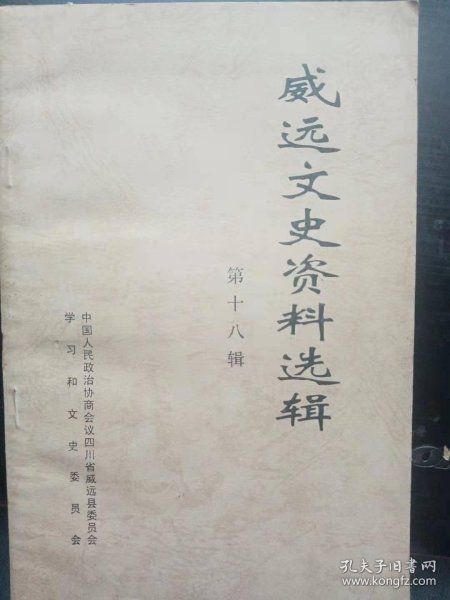 威远文史资料选辑
第十八辑
中国人民政治协商会议四川省威远县委员会
学习和文史委员会
孔夫子旧书网
www.kongfz.com